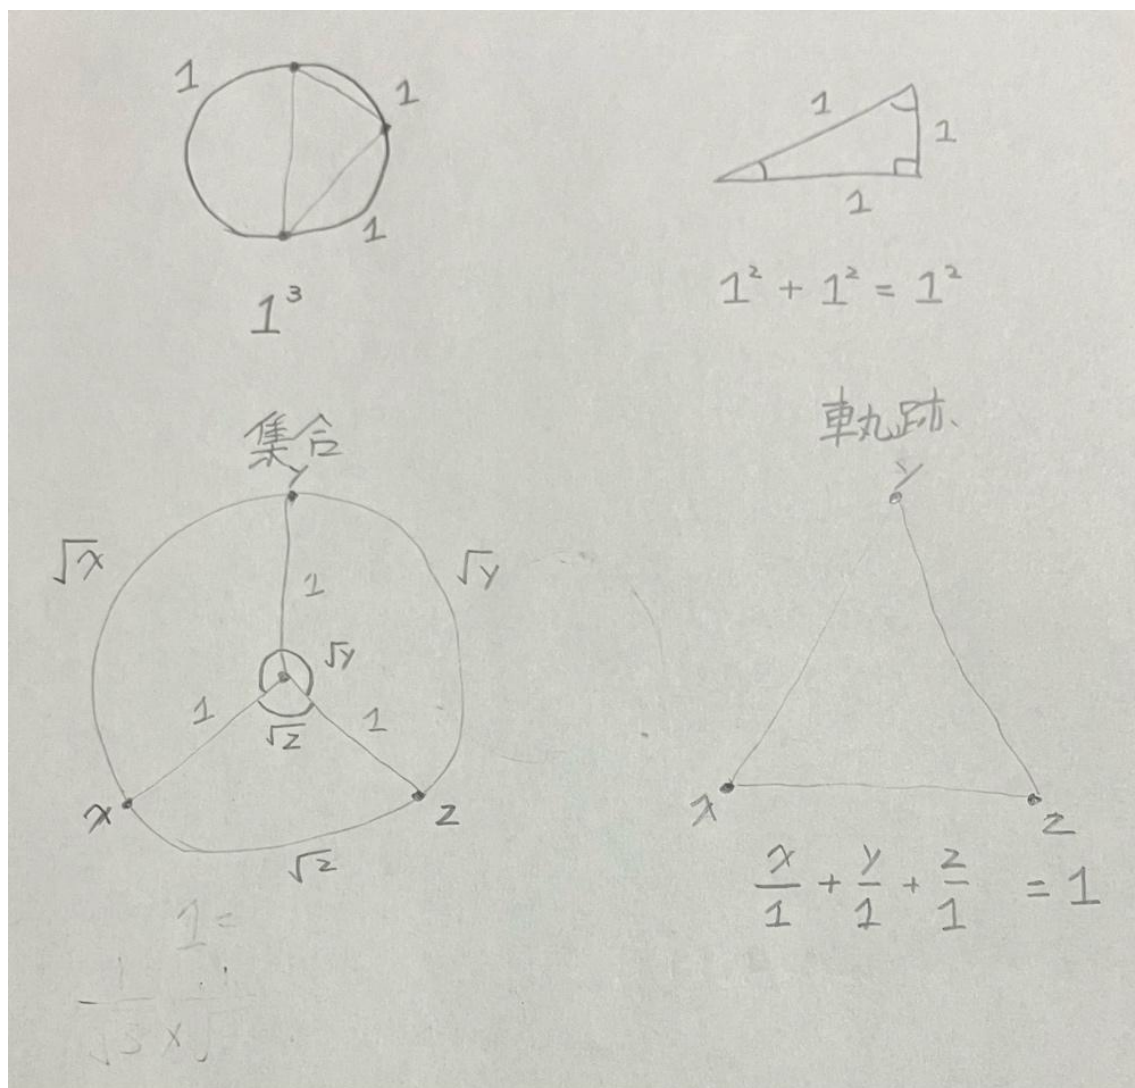 1
1
1
1³
1
1
1
1² + 1² = 1²
集合
Y
√x
√y
1
√y
1
1
√z
x
z
√z
1 =
軌跡
y
x
z
x/1 + y/1 + z/1 = 1